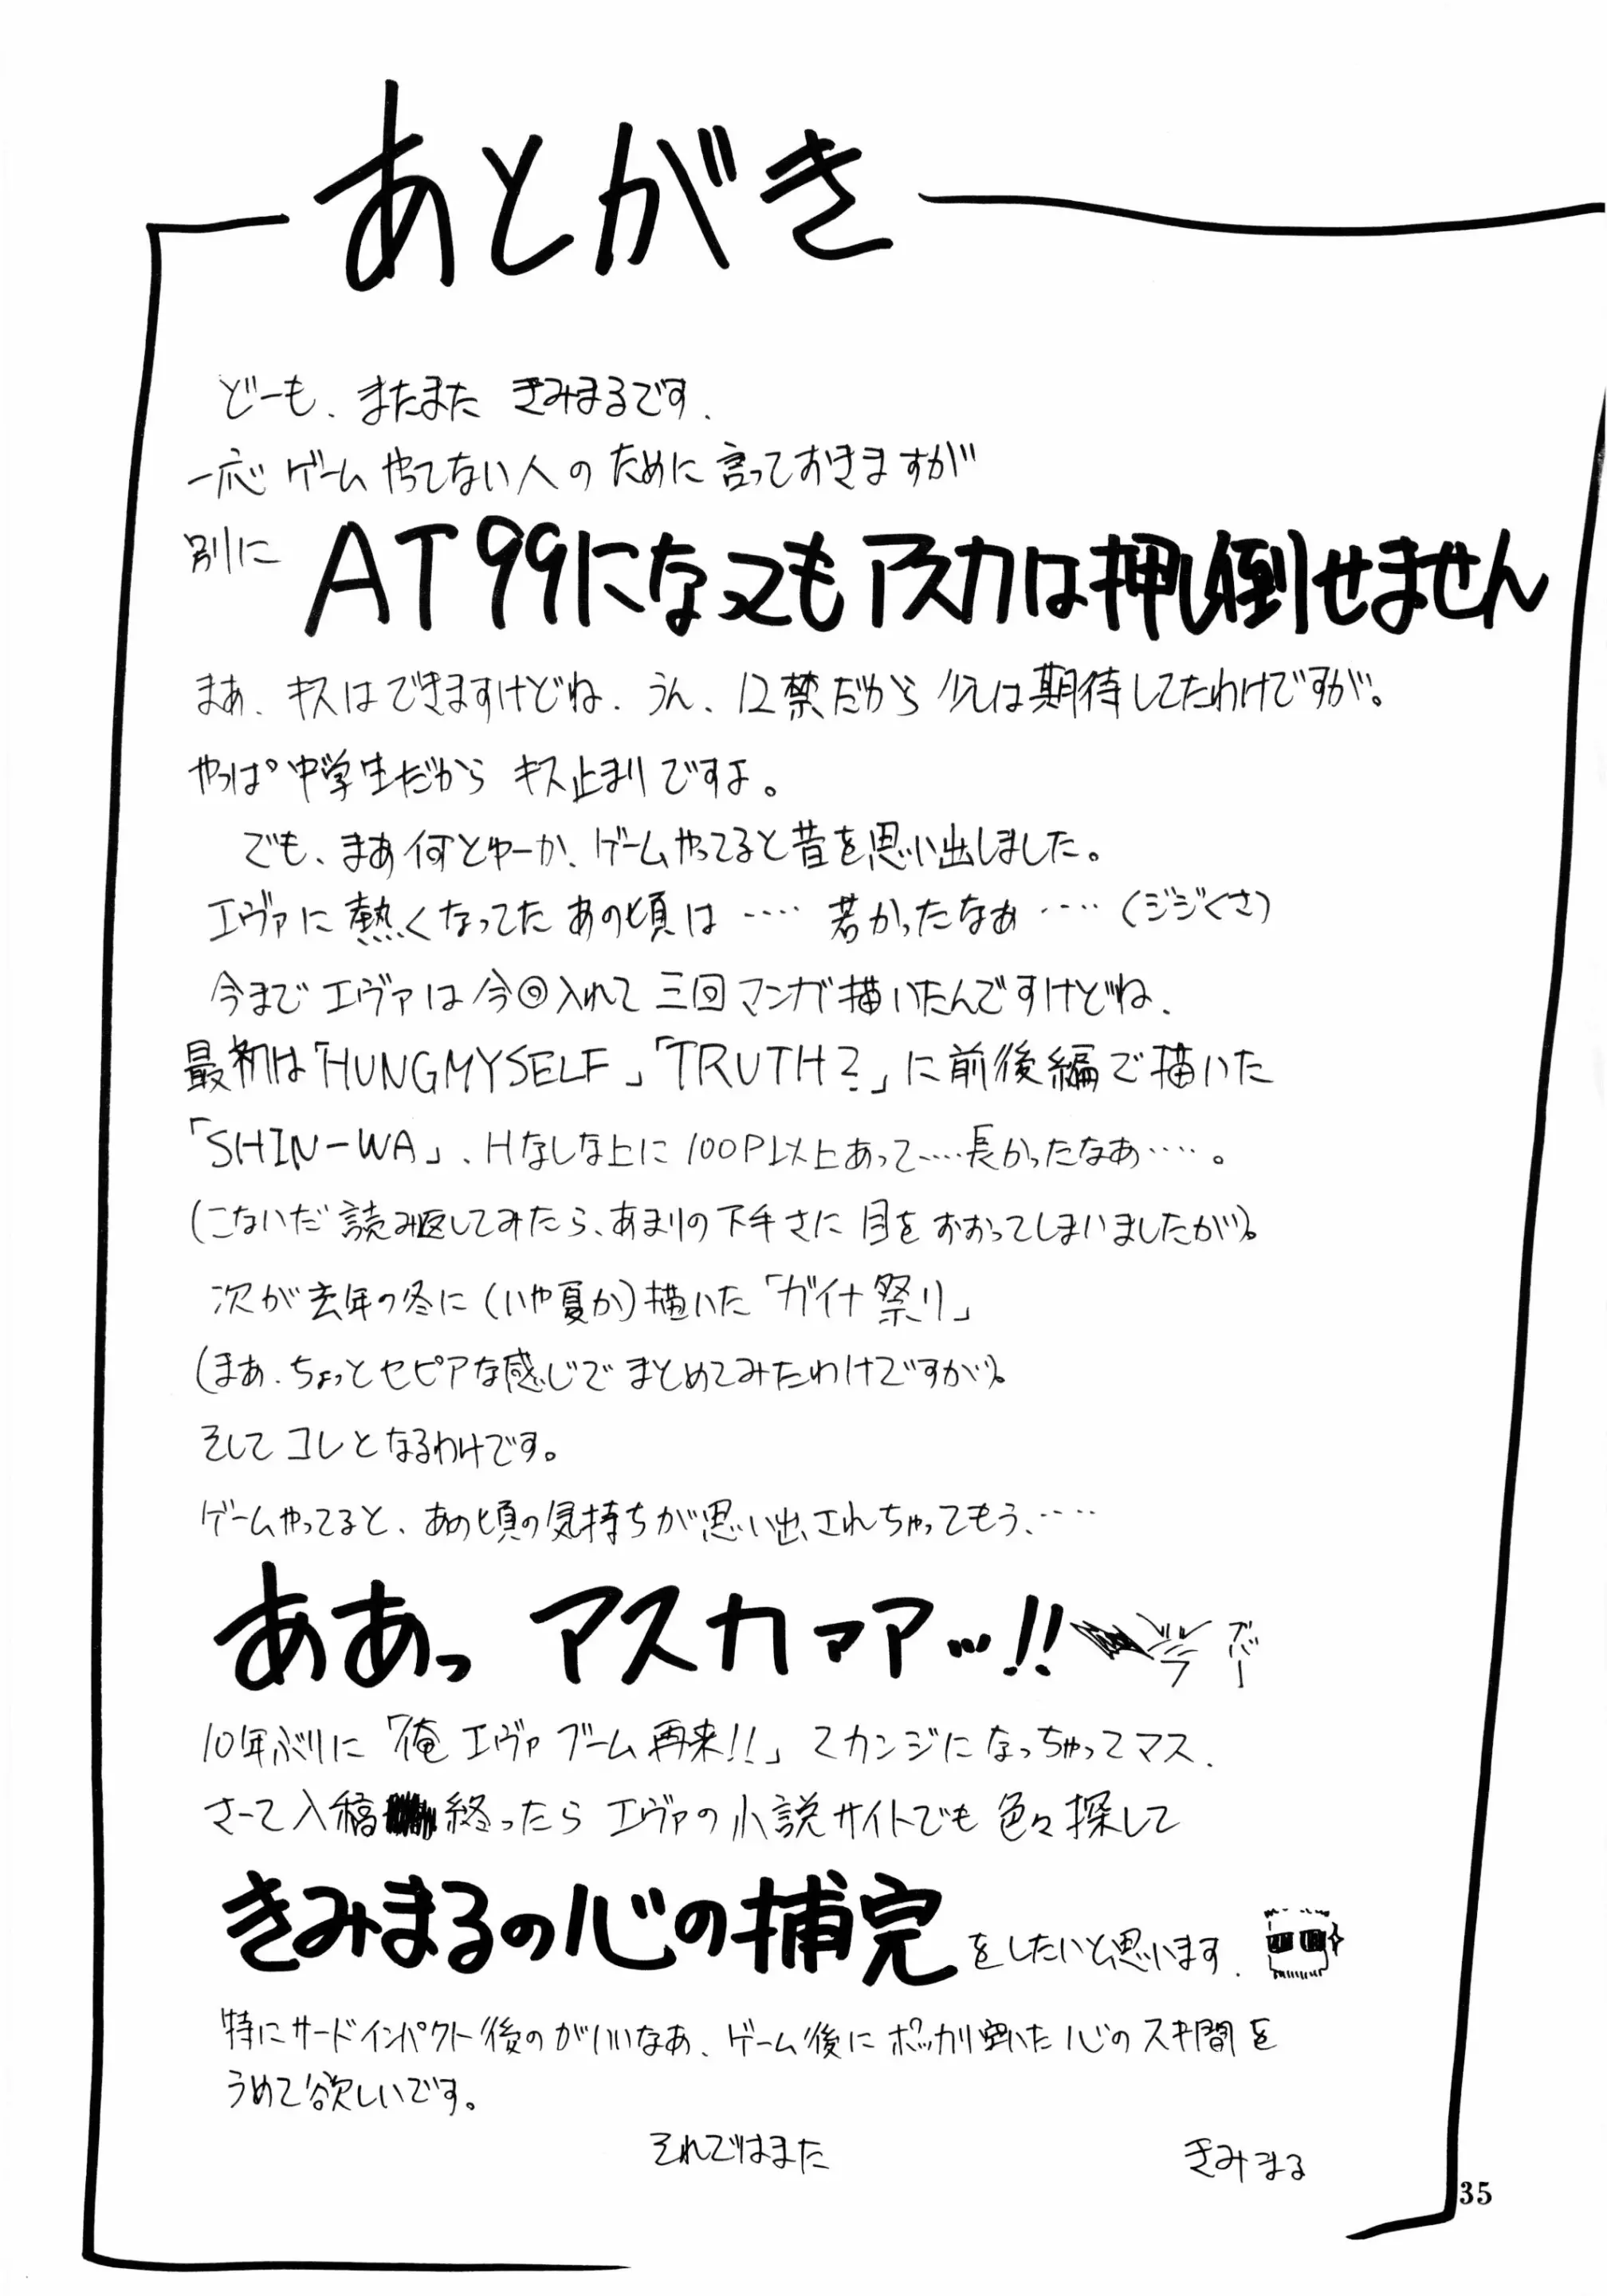 あとがき
どーも、またまた きみまるです.
一応 ゲームやってない人のために言っておきますが
別に AT99になってもアスカは押し倒せません
まぁ、キスはできますけどね、うん、12禁だから少しは期待してたわけですが。
やっぱ中学生だから キス止まりですよ。
でも、まあ何とゆーか、ゲームやってると昔を思い出しました。
エヴァに熱くなってた あの頃は‥‥ 若かったなぁ‥‥(ジジくさ)
今までエヴァは今回入れて三回マンガ描いたんですけどね、
最初は「HUNGMYSELF」「TRUTH?」に前後編で描いた
「SHIN-WA」、Hなしな上に100P以上あって‥‥長かったなあ‥‥。
(こないだ読み返してみたら、あまりの下手さに 目をおおってしまいましたが)。
次が去年の冬に(いや夏か)描いた「ガイナ祭り」
(まあ、ちょっとセピアな感じでまとめてみたわけですが)。
そして コレとなるわけです。
ゲームやってると、あの頃の気持ちが思い出されちゃってもう、‥‥
ああっ アスカァア…!!
ズバー
10年ぶりに「俺 エヴァ ブーム再来!!」てカンジになっちゃってマス.
さーて入稿 終ったら エヴァの小説サイトでも 色々探して
きみまるの心の補完をしたいと思います.
特にサードインパクト後のがいいなあ、ゲーム後に ポッカリ空いた心のスキ間を
うめて欲しいです。
それではまた
きみまる
35